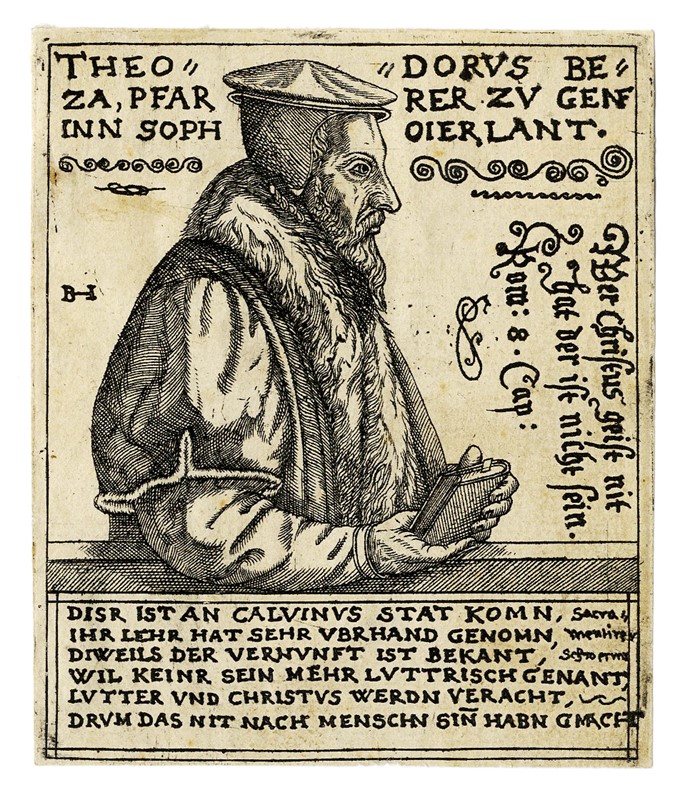 THEO〃 〃DORVS BE〃
ZA, PFAR RER ZV GENF
INN SOPH OIERLANT.
Wer Christus geist nit
hat der ist nicht sein.
Rom: 8. Cap:
BH
DISR IST AN CALVINVS STAT KOMN, Sacra〃
IHR LEHR HAT SEHR VBRHAND GENOMN,
DIWEILS DER VERNVNFT IST BEKANT,
WIL KEINR SEIN MEHR LVTTRISCH GENANT,
LVTTER VND CHRISTVS WERDN VERACHT,
DRVM DAS NIT NACH MENSCHN SIÑ HABN GMACHT